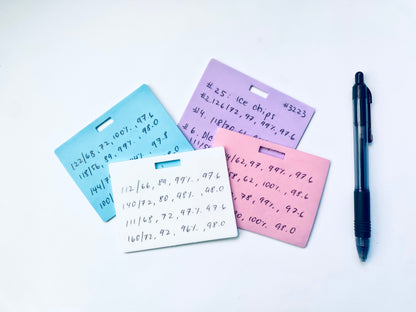 #25: ice chips
#3223
#2. 126/72, 97, 97%, 97.6
#4. 118/70
#6. D/c
122/68, 72, 100%, 97.6
118/56, 89, 99%, 98.0
144/7 97.8
100/
/62, 97, 99%, 97.6
58, 62, 100%, 98.6
78, 99%, 97.6
100%, 98.0
112/66, 89, 99%, 97.6
140/72, 80, 98%, 98.0
111/68, 72, 97%, 97.6
160/72, 92, 96%, 98.0